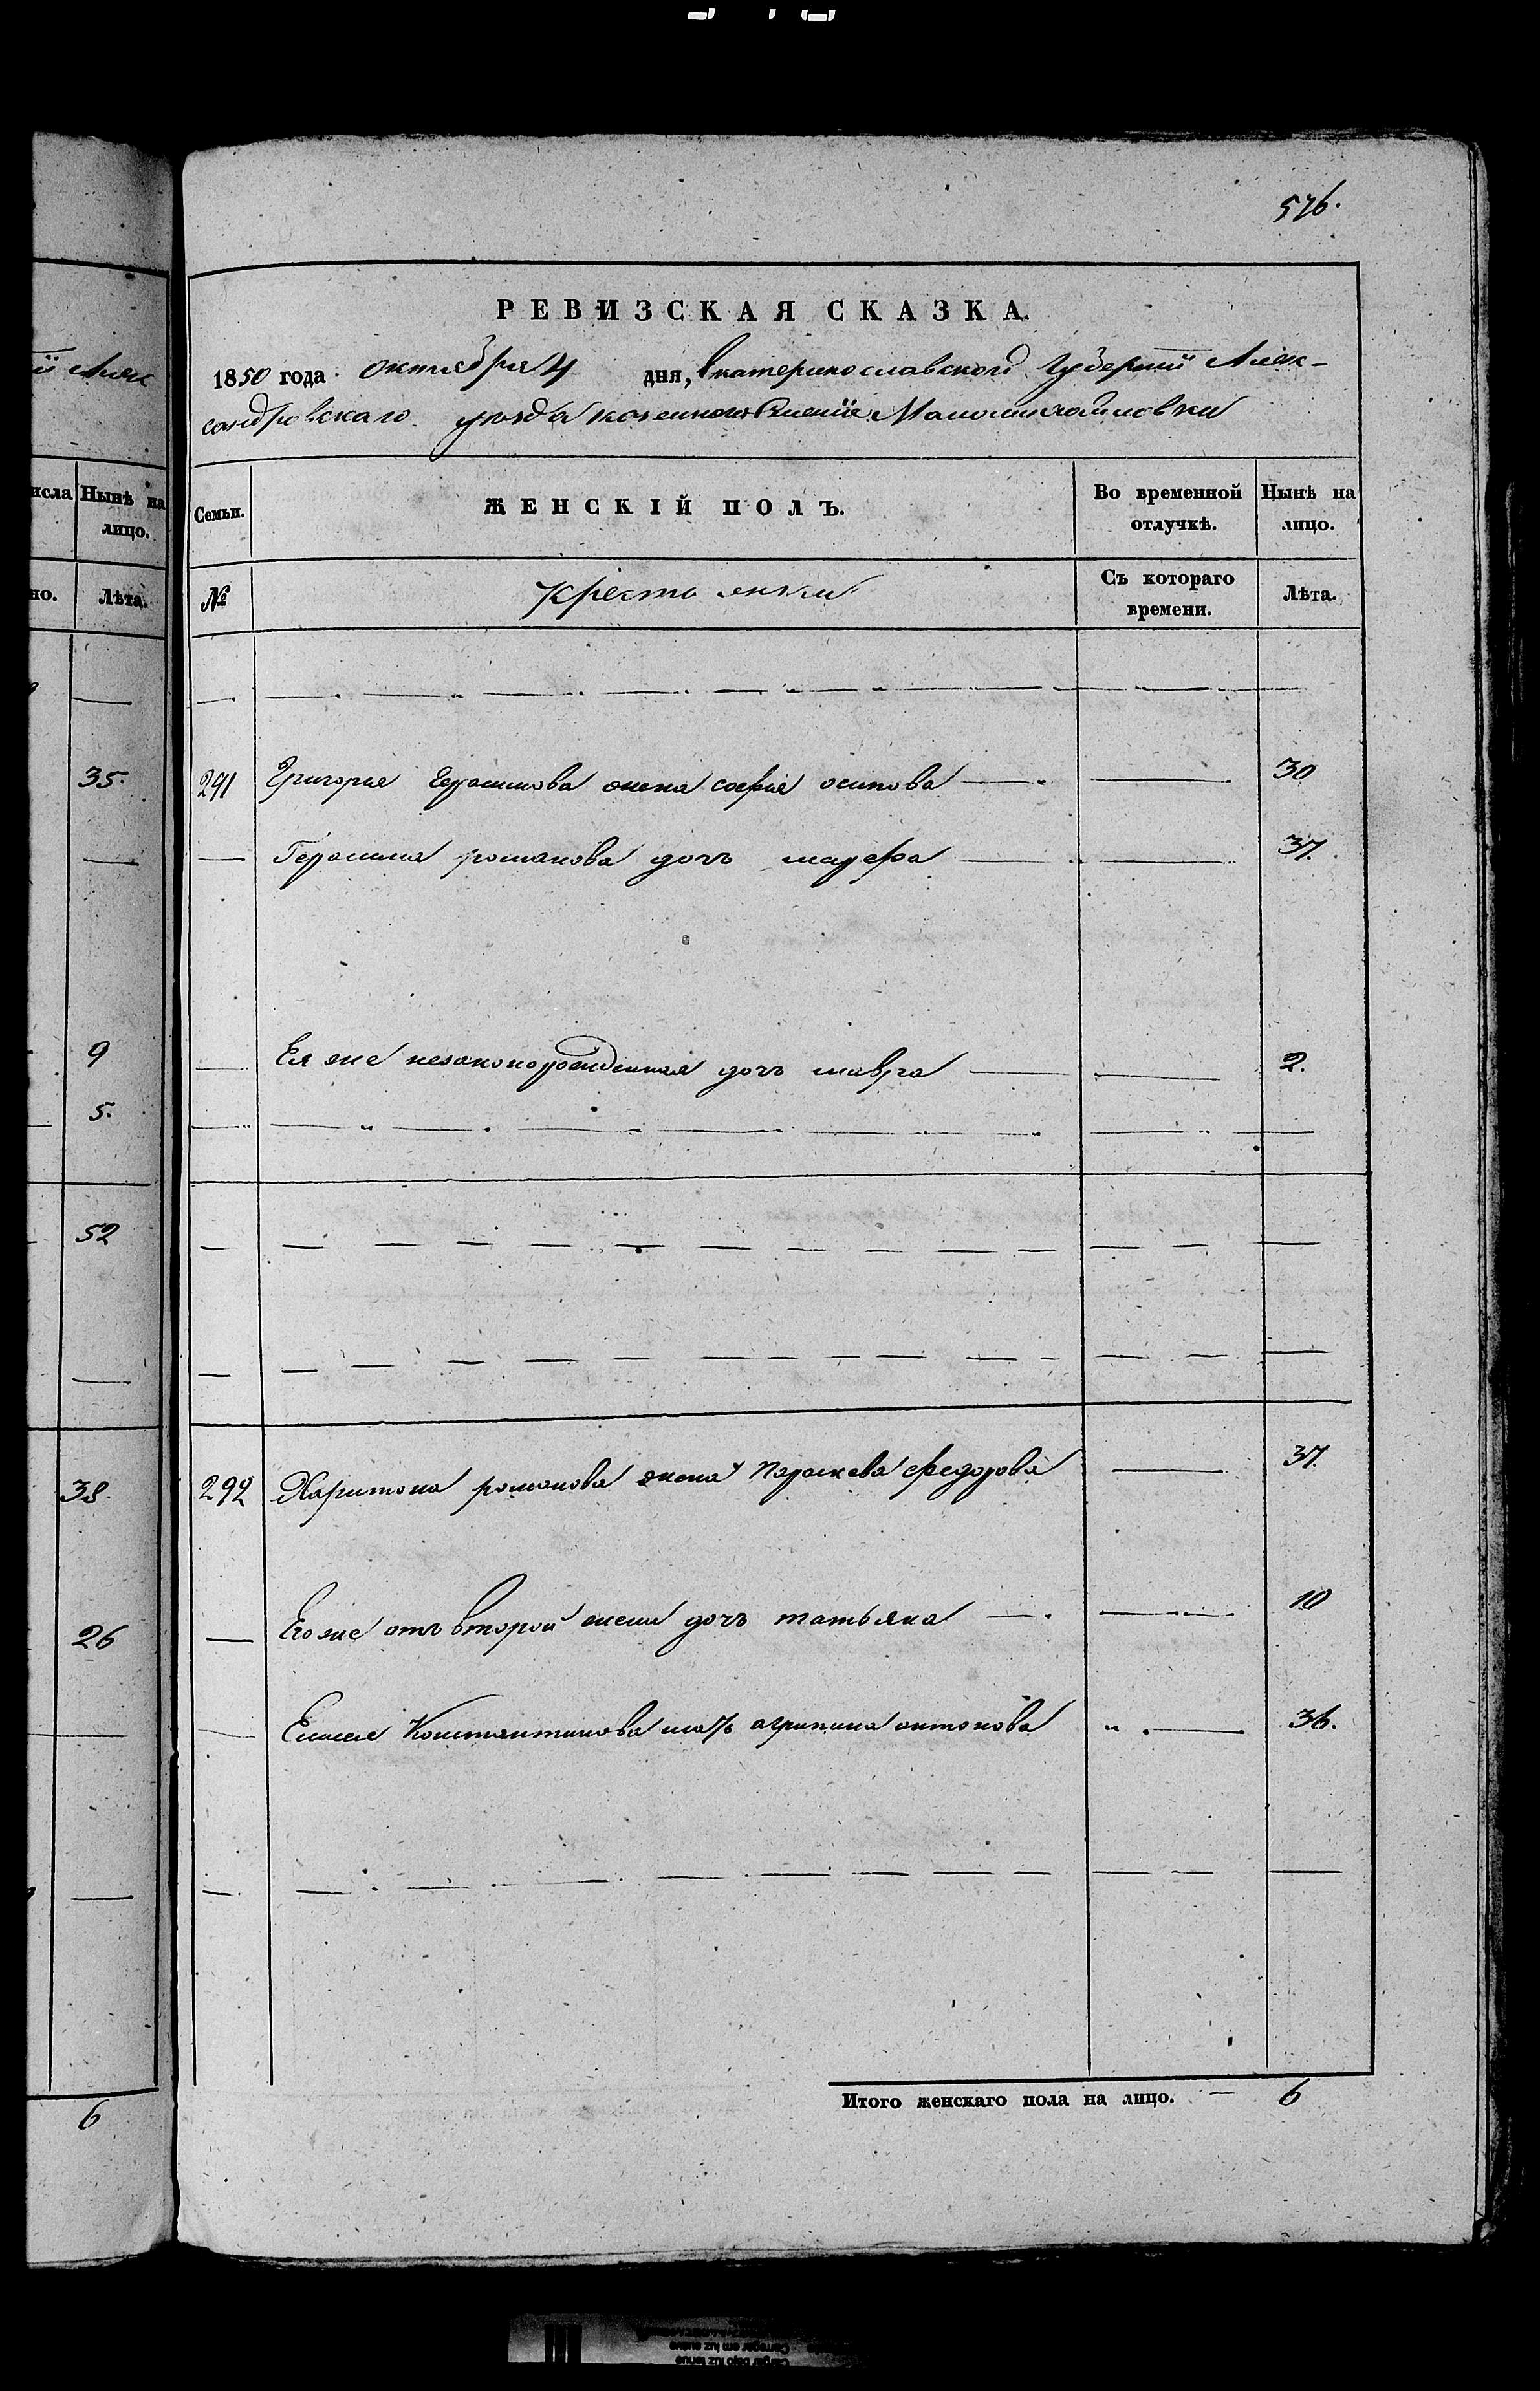 576.
РЕВИЗСКАЯ СКАЗКА.
1850 года октября 4 дня, Екатеринославской Губернии Алек-
сандровскаго уезда казенного селения Маломихайловки
Семьи. ЖЕНСКІЙ ПОЛЪ. Во временной отлучкѣ. Нынѣ на лицо.
№ Крестьянки Съ котораго времени. Лѣта.
291 Григория Герасимова жена софия осипова 30
Герасима романова дочь 37.
Ея же незаконорожденная дочь мавра 2.
292 Харитона романова жена Параскева федорова 37.
Его же отъ второй жены дочь татьяна 10
Константинова мать агрипина антонова 36.
Итого женскаго пола на лицо. — 6
ии Алек
исла Нынѣ на лицо.
но. Лѣта.
35.
9
5.
52
38.
26
6